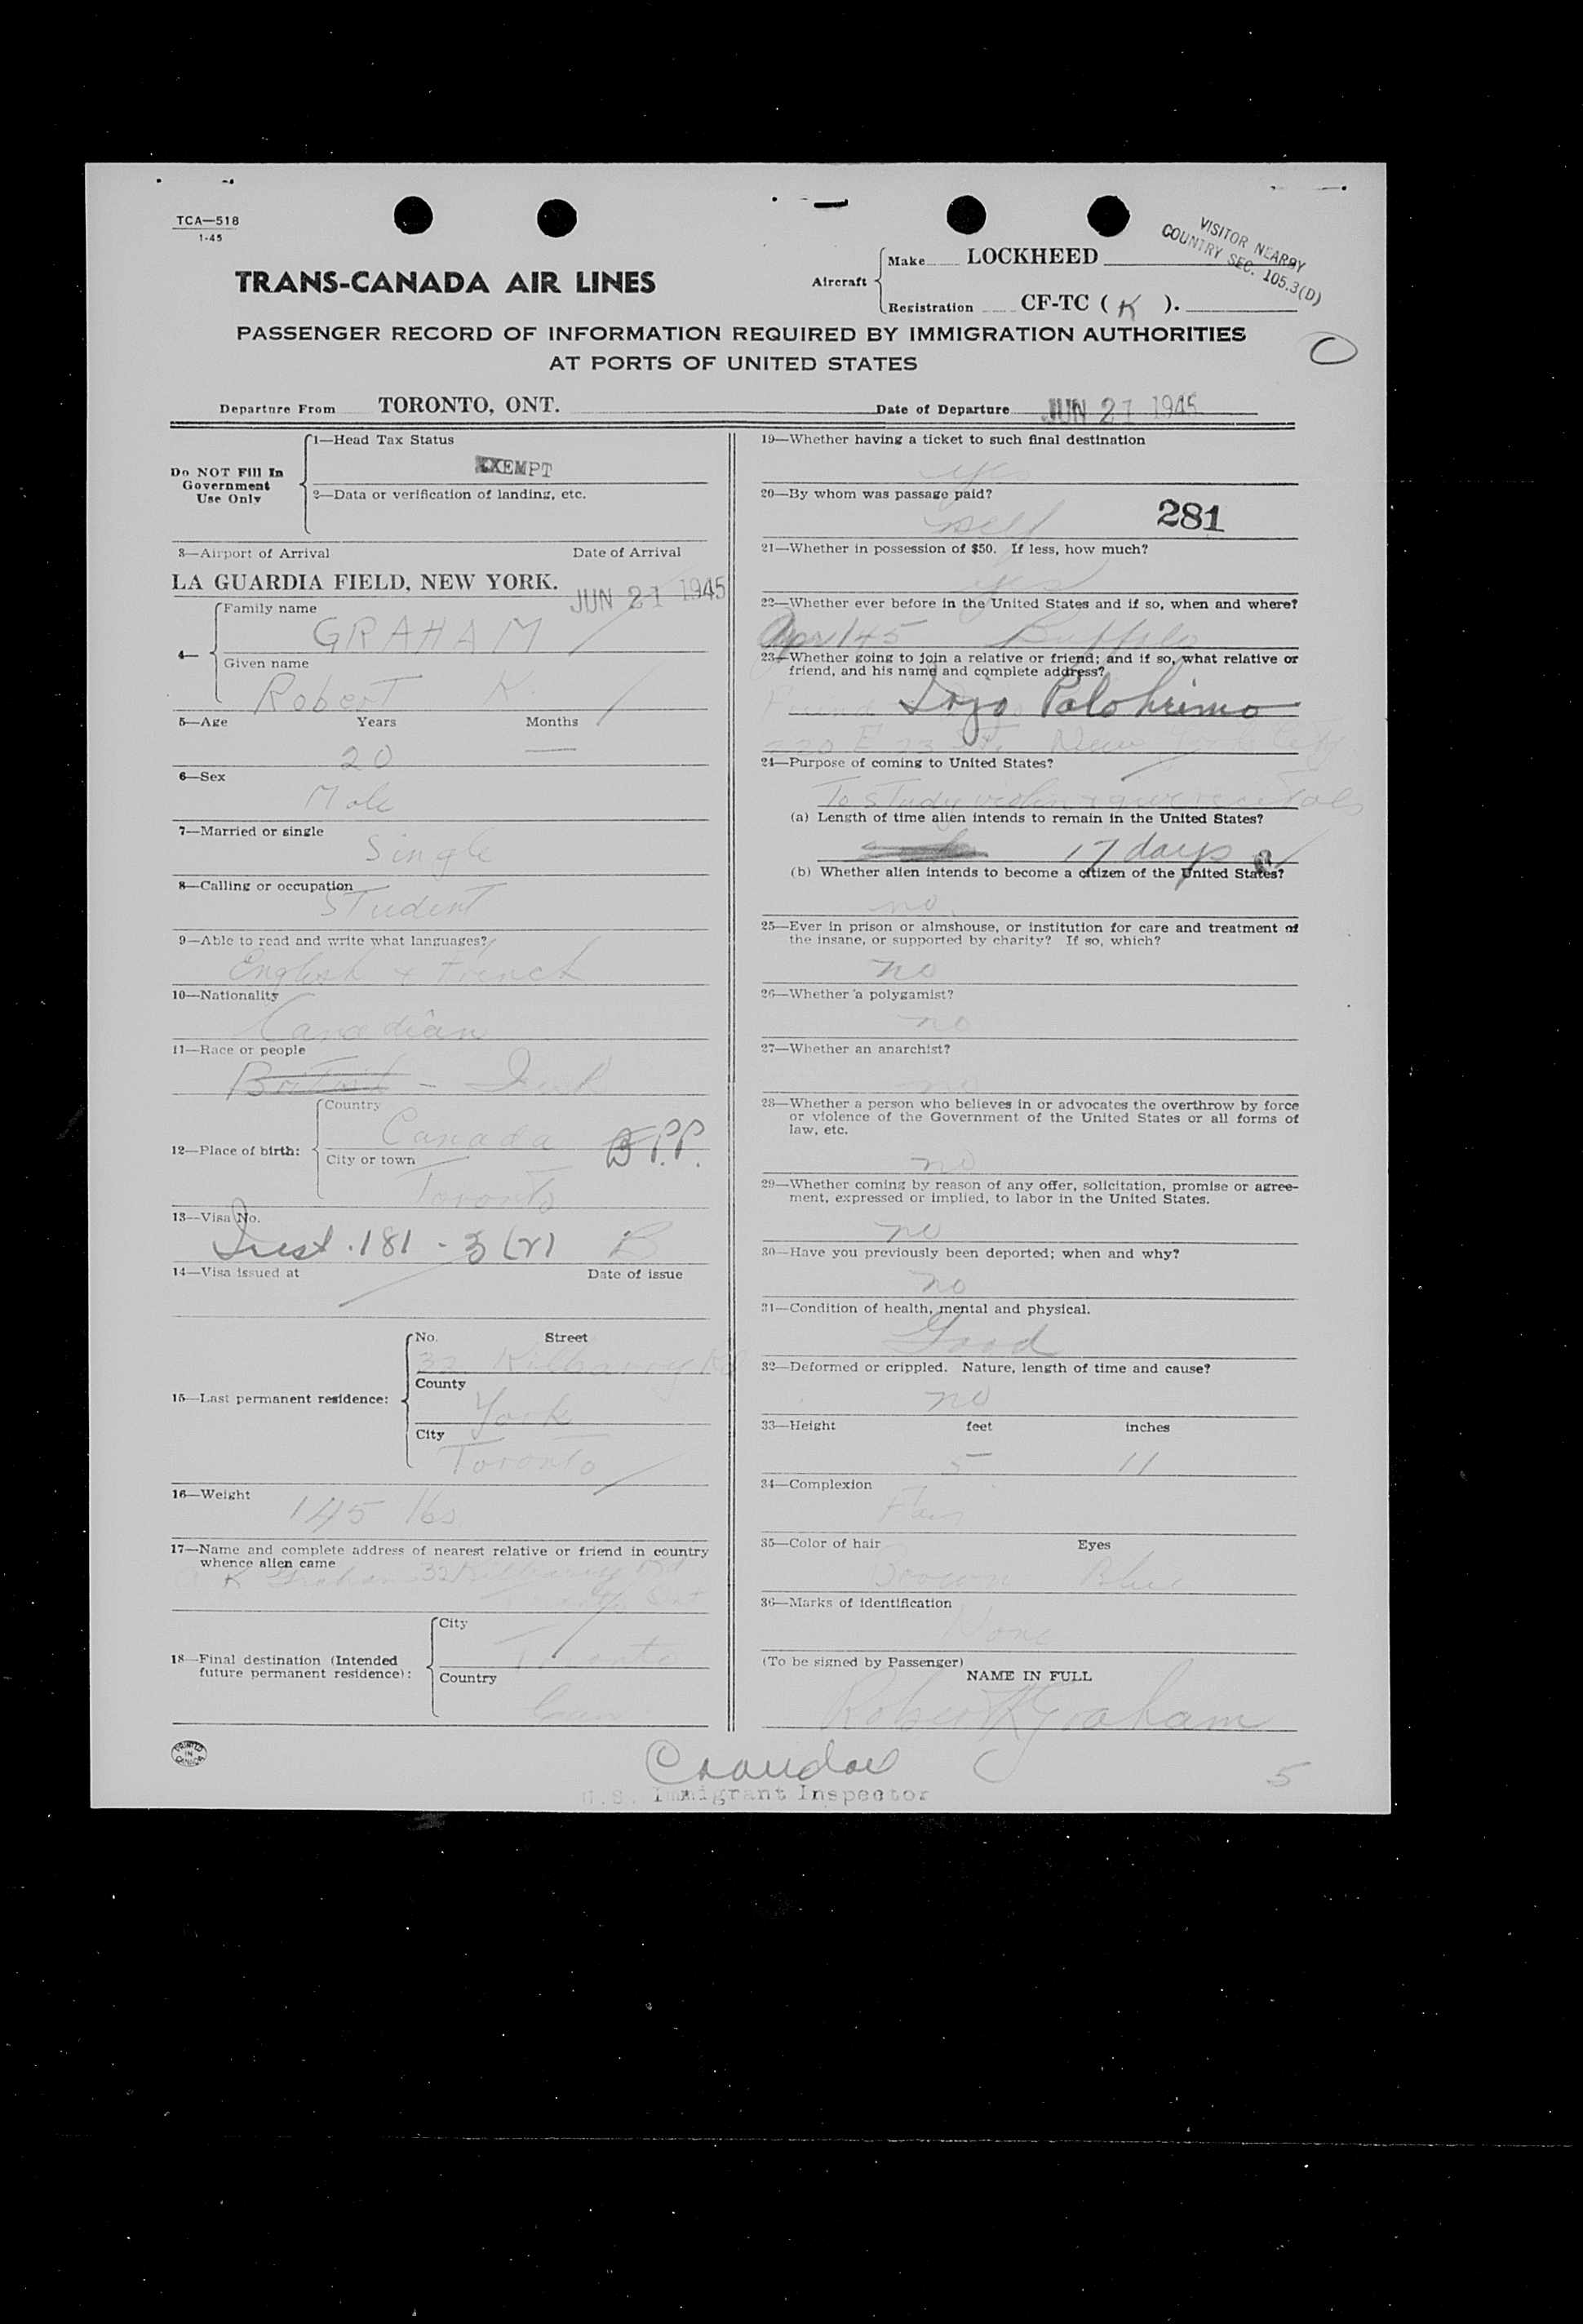 TCA—518
1-45
VISITOR NEARBY
COUNTRY SEC. 105.3(D)
TRANS-CANADA AIR LINES
Aircraft
Make LOCKHEED
Registration CF-TC ( K ).
PASSENGER RECORD OF INFORMATION REQUIRED BY IMMIGRATION AUTHORITIES
AT PORTS OF UNITED STATES
Departure From TORONTO, ONT. Date of Departure JUN 21 1945
Do NOT Fill In
Government
Use Only
1—Head Tax Status
EXEMPT
2—Data or verification of landing, etc.
3—Airport of Arrival Date of Arrival
LA GUARDIA FIELD, NEW YORK. JUN 21 1945
4—
Family name
GRAHAM
Given name
Robert K.
5—Age Years Months
20 —
6—Sex
Male
7—Married or single
Single
8—Calling or occupation
Student
9—Able to read and write what languages?
English + French
10—Nationality
Canadian
11—Race or people
British - Irish
12—Place of birth:
Country
Canada B.P.P.
City or town
Toronto
13—Visa No.
Inst. 181-3(r) B
14—Visa issued at Date of issue
15—Last permanent residence:
No. Street
32
County
York
City
Toronto
16—Weight
145 lbs
17—Name and complete address of nearest relative or friend in country
whence alien came
K Graham 32
18—Final destination (Intended
future permanent residence):
City
Toronto
Country
19—Whether having a ticket to such final destination
yes
20—By whom was passage paid?
self 281
21—Whether in possession of $50. If less, how much?
yes
22—Whether ever before in the United States and if so, when and where?
Apr/45 Buffalo
23—Whether going to join a relative or friend; and if so, what relative or
friend, and his name and complete address?
Friend Palohrimo
E 23 St. New York City
24—Purpose of coming to United States?
To study violin + give recitals
(a) Length of time alien intends to remain in the United States?
17 days
(b) Whether alien intends to become a citizen of the United States?
no.
25—Ever in prison or almshouse, or institution for care and treatment of
the insane, or supported by charity? If so, which?
no
26—Whether a polygamist?
no
27—Whether an anarchist?
no
28—Whether a person who believes in or advocates the overthrow by force
or violence of the Government of the United States or all forms of
law, etc.
no
29—Whether coming by reason of any offer, solicitation, promise or agree-
ment, expressed or implied, to labor in the United States.
no
30—Have you previously been deported; when and why?
no
31—Condition of health, mental and physical.
Good
32—Deformed or crippled. Nature, length of time and cause?
no
33—Height feet inches
5 11
34—Complexion
Fair
35—Color of hair Eyes
Brown Blue
36—Marks of identification
None
(To be signed by Passenger)
NAME IN FULL
Robert K Graham
PRINTED
IN
CANADA
U.S. Immigrant Inspector
5